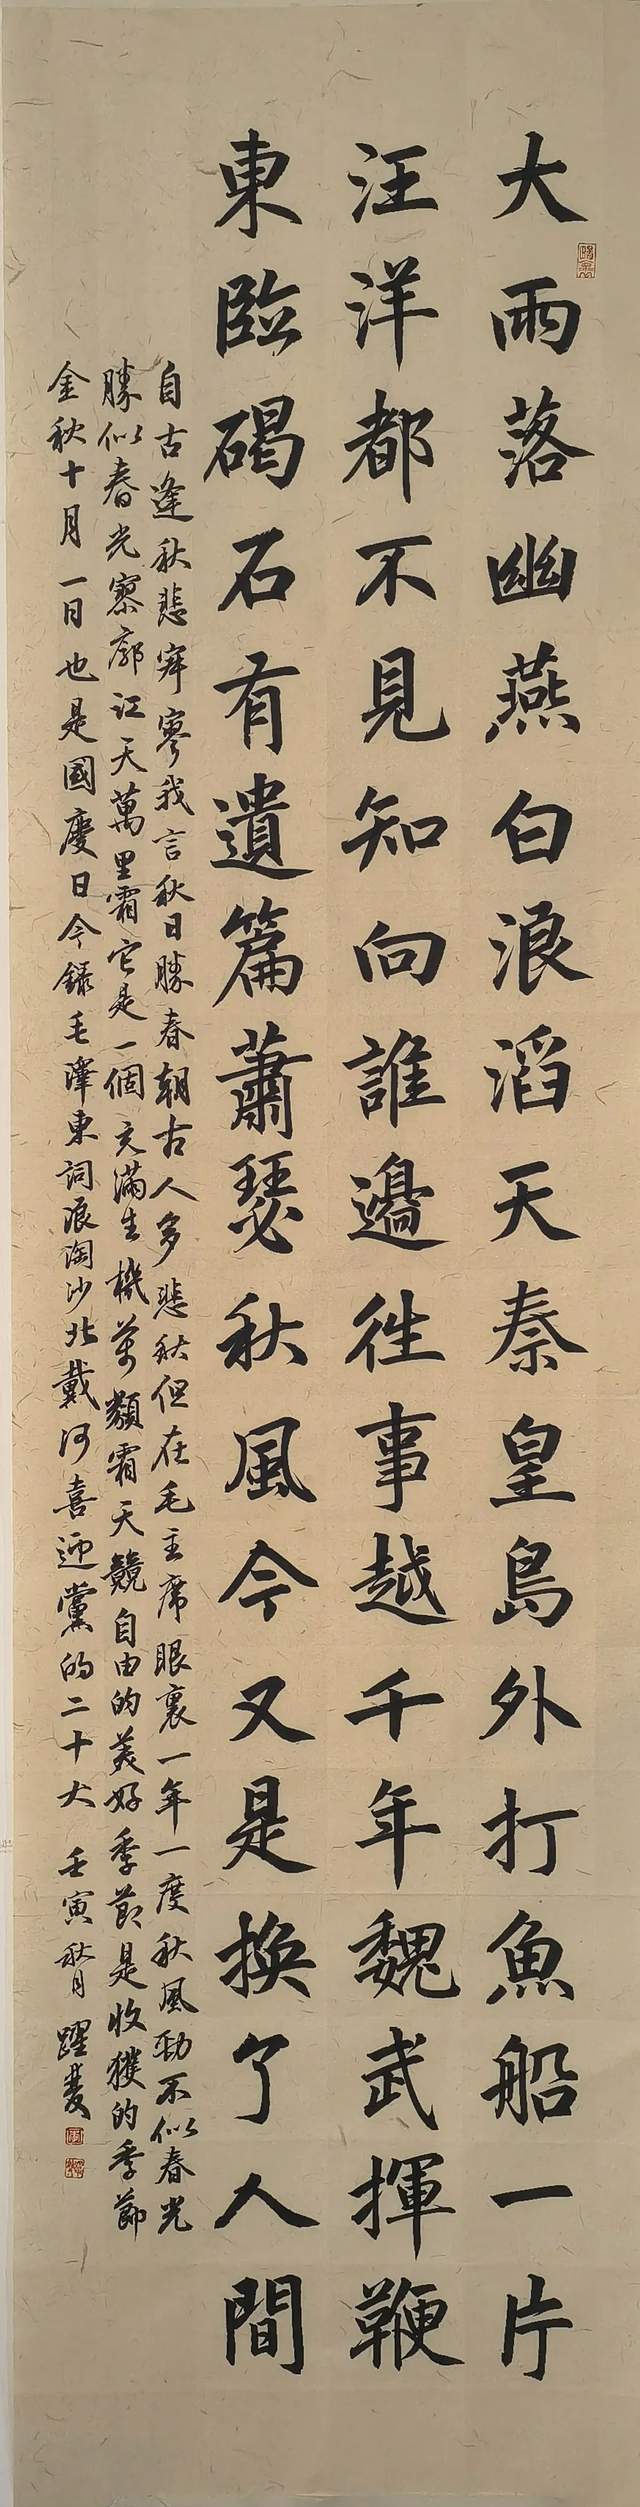 大雨落幽燕白浪滔天秦皇島外打魚船一片
汪洋都不見知向誰邊徃事越千年魏武揮鞭
東臨碣石有遺篇蕭瑟秋風今又是換了人間
自古逢秋悲寂寥我言秋日勝春朝古人多悲秋但在毛主席眼裏一年一度秋風勁不似春光
勝似春光寥廓江天萬里霜它是一個充滿生機萬類霜天競自由的美好季節是收獲的季節
金秋十月一日也是國慶日今錄毛澤東詞浪淘沙北戴河喜迎黨的二十大 壬寅秋月 躍